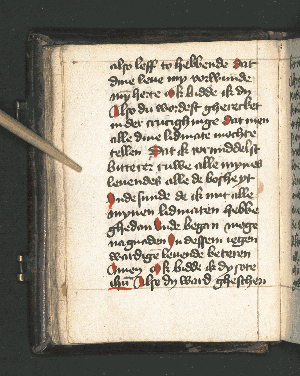 also leff to hebbende dat
dine leue myn vorwunde
myn herte Ok bidde ik dy
Also du wordest gherecket
in der crucighinge Dat men
alle dine lidmate mochte
tellen Dat ik vormiddelst
bitterer ruwe alle mynes
leuendes alle de bosheyt
unde sunde de ik mit alle
mynen lidmaten hebbe
ghedan Unde began moge
nagnaden In dessem iegen
wardige leuende beteren
Amen Ok bidde ik dy sote
ihu Also dy ward gheschen